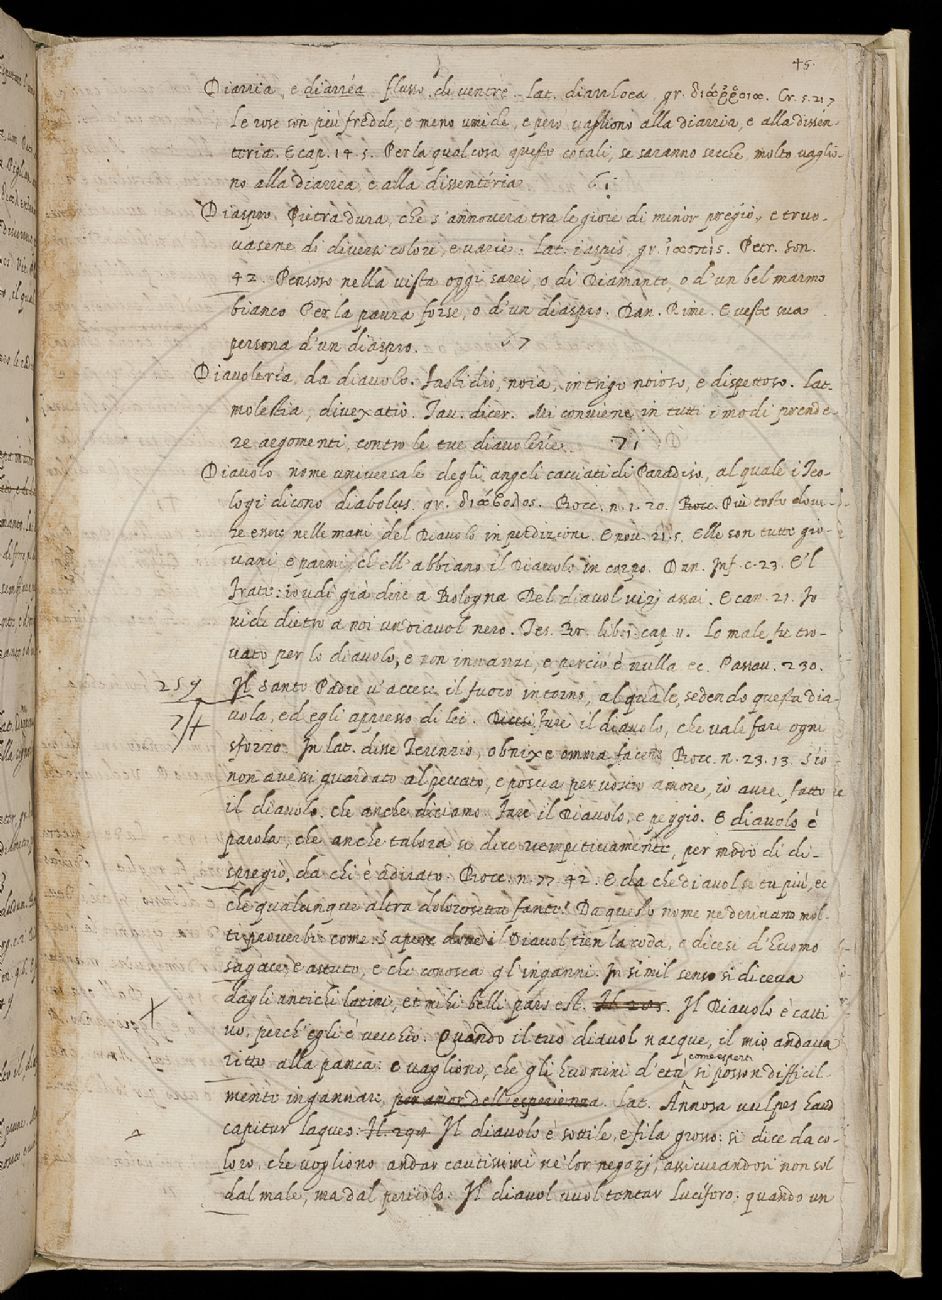 45
Diarria, e diarréa flusso di ventre. lat. diarrhoea gr. διάῤῥοια. Cr. 5. 21,
Le rose son più fredde, e meno umide, e però vagliono alla diarria, e alla dissen-
teria. E cap. 14. 5. Per la qual cosa questo cotali, se saranno secche, molto vaglio-
no alla diarrea, e alla dissentéria
Diaspro. Pietra dura, che s'annovera tra le gioie di minor pregio, e truo-
vasene di diversi colori, e varie. Lat. iaspis, gr. ἴασπις. Petr. son.
42. Pensoso nella vista oggi sarei, o di Diamante, o d'un bel marmo
bianco Per la paura forse, o d'un diaspro. Dan. Rime. E veste sua
persona d'un diaspro. 57
Diavoleria, da diavolo. Fastidio, noia, intrigo noioso, e dispettoso. Lat.
molestia, divexatio. Tav. dicer. Mi conviene in tutti i modi prende-
re argomenti, contro le tue diavolerie. 71
Diavolo nome universale degli angeli cacciati di Paradiso, al quale i Teo-
logi dicono diabolus. gr. διάβολος. Bocc. n. 1. 20. Bocc. Più tosto dove-
re enno nelle mani del Diavolo in perdizione. E nov. 21. 5. Elle son tutte gio-
vani e parmi, ch'ell'abbiano il Diavolo in corpo. Dan. Inf. c. 23. E 'l
frate: io udi già dire a Bologna Del diavol vizj assai. E can. 21. Io
vidi dietro a noi un diavol nero. Tes. Br. libr. cap. 11. Lo male fu tro-
vato per lo diavolo, e non innanzi, e perciò è nulla ec. Passav. 230.
259 Il Santo Padre v'accese il fuoco intorno, al quale, sedendo questa dia-
7/+ vola, ed egli appresso di lei. Dicesi Fare il diavolo, che vale fare ogni
sforzo. In lat. disse Terenzio, obnixe omnia facere Bocc. n. 23. 13. S'io
non avessi guardato al peccato, e poscia per vostro amore, io avre fatto
il diavolo. che anche diciamo Fare il Diavolo, e peggio. E diavolo è
parola, che anche talora si dice riempitivamente, per modo di di-
spregio, da chi è adirato. Bocc. n. 77. 42. E da che diavol se tu più, ec
che qualunque altra dolorosetta fante? Da questo nome ne derivano mol-
ti proverbi come Sapere dove il Diavol tien la coda, e dicesi d'Huomo
sagace, e astuto, e che conosca gl'inganni. In simil senso si diceva
dagli antichi latini, et mihi belli pars est. Il Diavolo è catti
vo, perch'egli è vecchio. Quando il tuo diavol nacque, il mio andava
ritto alla panca: e vagliono, che gli Huomini d'età come esperti si posson difficil-
mente ingannare, per amor dell'esperienza lat. Annosa vulpes haud
capitur laqueo. Il diavolo è sottile, e fila grosso: si dice da co-
loro, che vogliono andar cautissimi ne' lor negozj, assicurandosi non sol
dal male, ma dal pericolo. Il diavol vuol tentar Lucifero: quando un